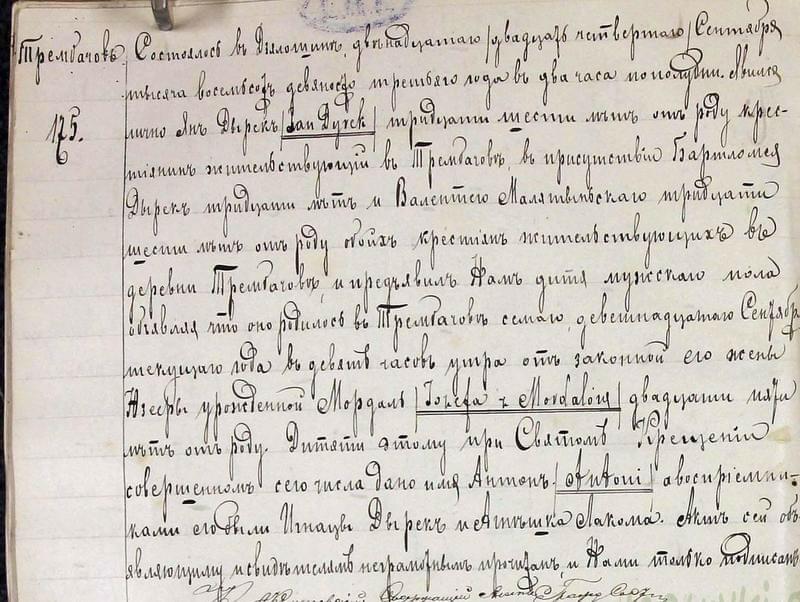 Трембачовъ Состоялось въ Дзялошинѣ, двѣнадцатаго /двадцать четвертаго/ Сентября
тысяча восемьсотъ девяносто третьяго года въ два часа пополудни. Явился
175. лично Янъ Дырекъ /Jan Dyrek/ тридцати шести лѣтъ отъ роду крес-
тіянинъ жительствующій въ Трембачовѣ, въ присутствіи Бартломея
Дырекъ тридцати лѣтъ и Валентего тридцати
шести лѣтъ отъ роду обоихъ крестіянъ жительствующихъ въ
деревни Трембачовѣ, и предъявилъ Намъ дитя мужскаго пола
объявляя что оно родилось въ Трембачовѣ седмаго, девятнадцатаго Сентября
текущаго года въ девять часовъ утра отъ законной его жены
Юзефы урожденной Мордаль /Józefa z Mordalów/ двадцати пяти
лѣтъ отъ роду. Дитяти этому при Святомъ Крещеніи
совершенномъ сего числа дано имя Антонъ /Antoni/ а воспріемни-
ками его были Игнацы Дырекъ и Лакома. Актъ сей объ-
являющему и свидѣтелямъ неграмотнымъ прочитанъ и Нами только подписанъ.
Содержащій Акты